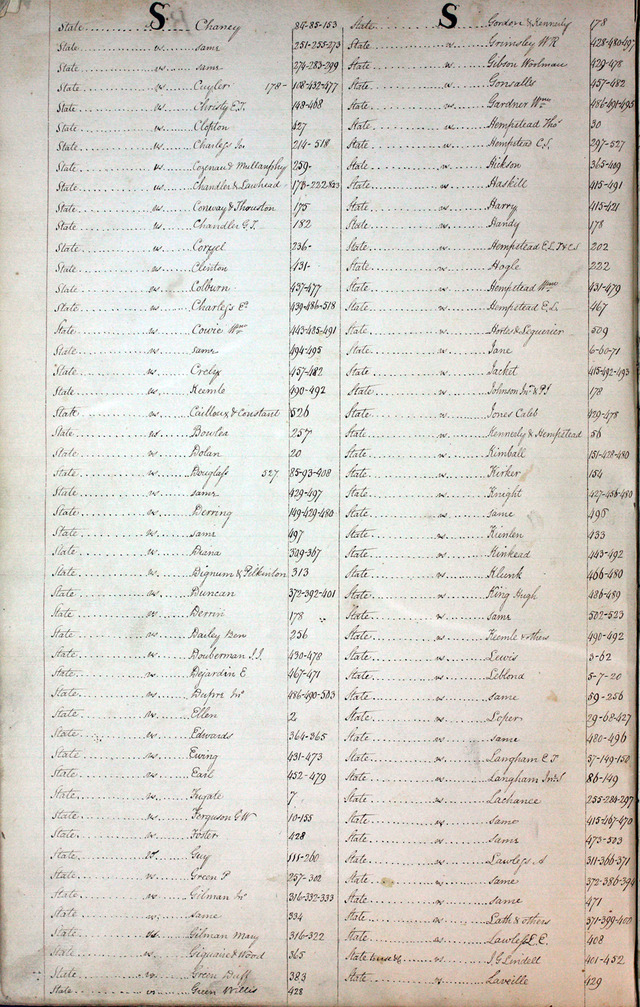 S
State vs. Chancy 84-85-153
State vs. same 251-255-273
State vs. same 274-283-299
State vs. Cuyler 178- 108-432-477
State vs. Christy E.T. 148-468
State vs. Clopton 427
State vs. Charless Jn 214-518
State vs. Cozenau & Mullanphy 259-
State vs. Chandler & Lawhead 178-222
State vs. Conway & Thouston 175
State vs. Chandler G.T. 182
State vs. Coryel 236-
State vs. Clinton 431-
State vs. Colburn 437-477
State vs. Charless Ed 439-486-518
State vs. Cowie Wm 443-485-491
State vs. same 494-495
State vs. Crely 457-482
State vs. Keemle 490-492
State vs. Cailloux & Constant 526
State vs. Bowlea 257
State vs. Dolan 20
State vs. Douglass 527 85-93-408
State vs. same 429-497
State vs. Derring 149-429-480
State vs. same 497
State vs. Deana 309-367
State vs. Dignum & Pilkinton 313
State vs. Duncan 372-392-401
State vs. Derrin 178
State vs. Dailey Ben 256
State vs. Douberman J.J. 430-478
State vs. Dejardin E 467-471
State vs. Dupre Jn 486-490-503
State vs. Ellen 2
State vs. Edwards 364-365
State vs. Ewing 431-473
State vs. Earl 452-479
State vs. Frijate 7
State vs. Ferguson G.W 10-155
State vs. Foster 428
State vs. Guy 111-260
State vs. Green P 257-302
State vs. Gilman Jn 316-332-333
State vs. same 334
State vs. Gilman Mary 316-322
State vs. Giquaire & Wood 365
State vs. Green Duff 383
State vs. Green Willis 428
S
State vs. Gordon & Kennerly 178
State vs. Grimsley W R 428-480-497
State vs. Gibson Woolman 429-478
State vs. Gonsalls 457-482
State vs. Gardner Wm 486-491-495
State vs. Hempstead Thos 30
State vs. Hempstead C.S. 297-527
State vs. Hickson 365-409
State vs. Haskill 415-491
State vs. Harry 415-421
State vs. Handy 178
State vs. Hempstead E.L.T & C.S 202
State vs. Hogle 222
State vs. Hempstead Wm 431-479
State vs. Hempstead E.L. 467
State vs. Horte & Seguerier 509
State vs. Jane 6-60-71
State vs. Jacket 415-492-493
State vs. Johnson Jn & P.J 178
State vs. Jones Caleb 429-478
State vs. Kennerly & Hempstead 56
State vs. Kimball 151-428-480
State vs. Kirker 154
State vs. Knight 427-456-480
State vs. same 496
State vs. Kinlen 433
State vs. Kinkead 443-492
State vs. Klunk 466-480
State vs. King Hugh 486-489
State vs. same 502-523
State vs. Keemle & others 490-492
State vs. Lewis 3-62
State vs. Leblond 5-7-20
State vs. same 59-256
State vs. Loper 29-68-427
State vs. same 480-496
State vs. Langham E T 57-149-150
State vs. Langham Jno S 86-149
State vs. Lachance 255-284-297
State vs. same 415-467-470
State vs. same 473-503
State vs. Lawless A 311-366-371
State vs. same 372-386-394
State vs. same 471
State vs. Lath & others 371-399-400
State vs. Lawless L.E. 408
State vs. J G Lindell 401-452
State vs. Laveille 429